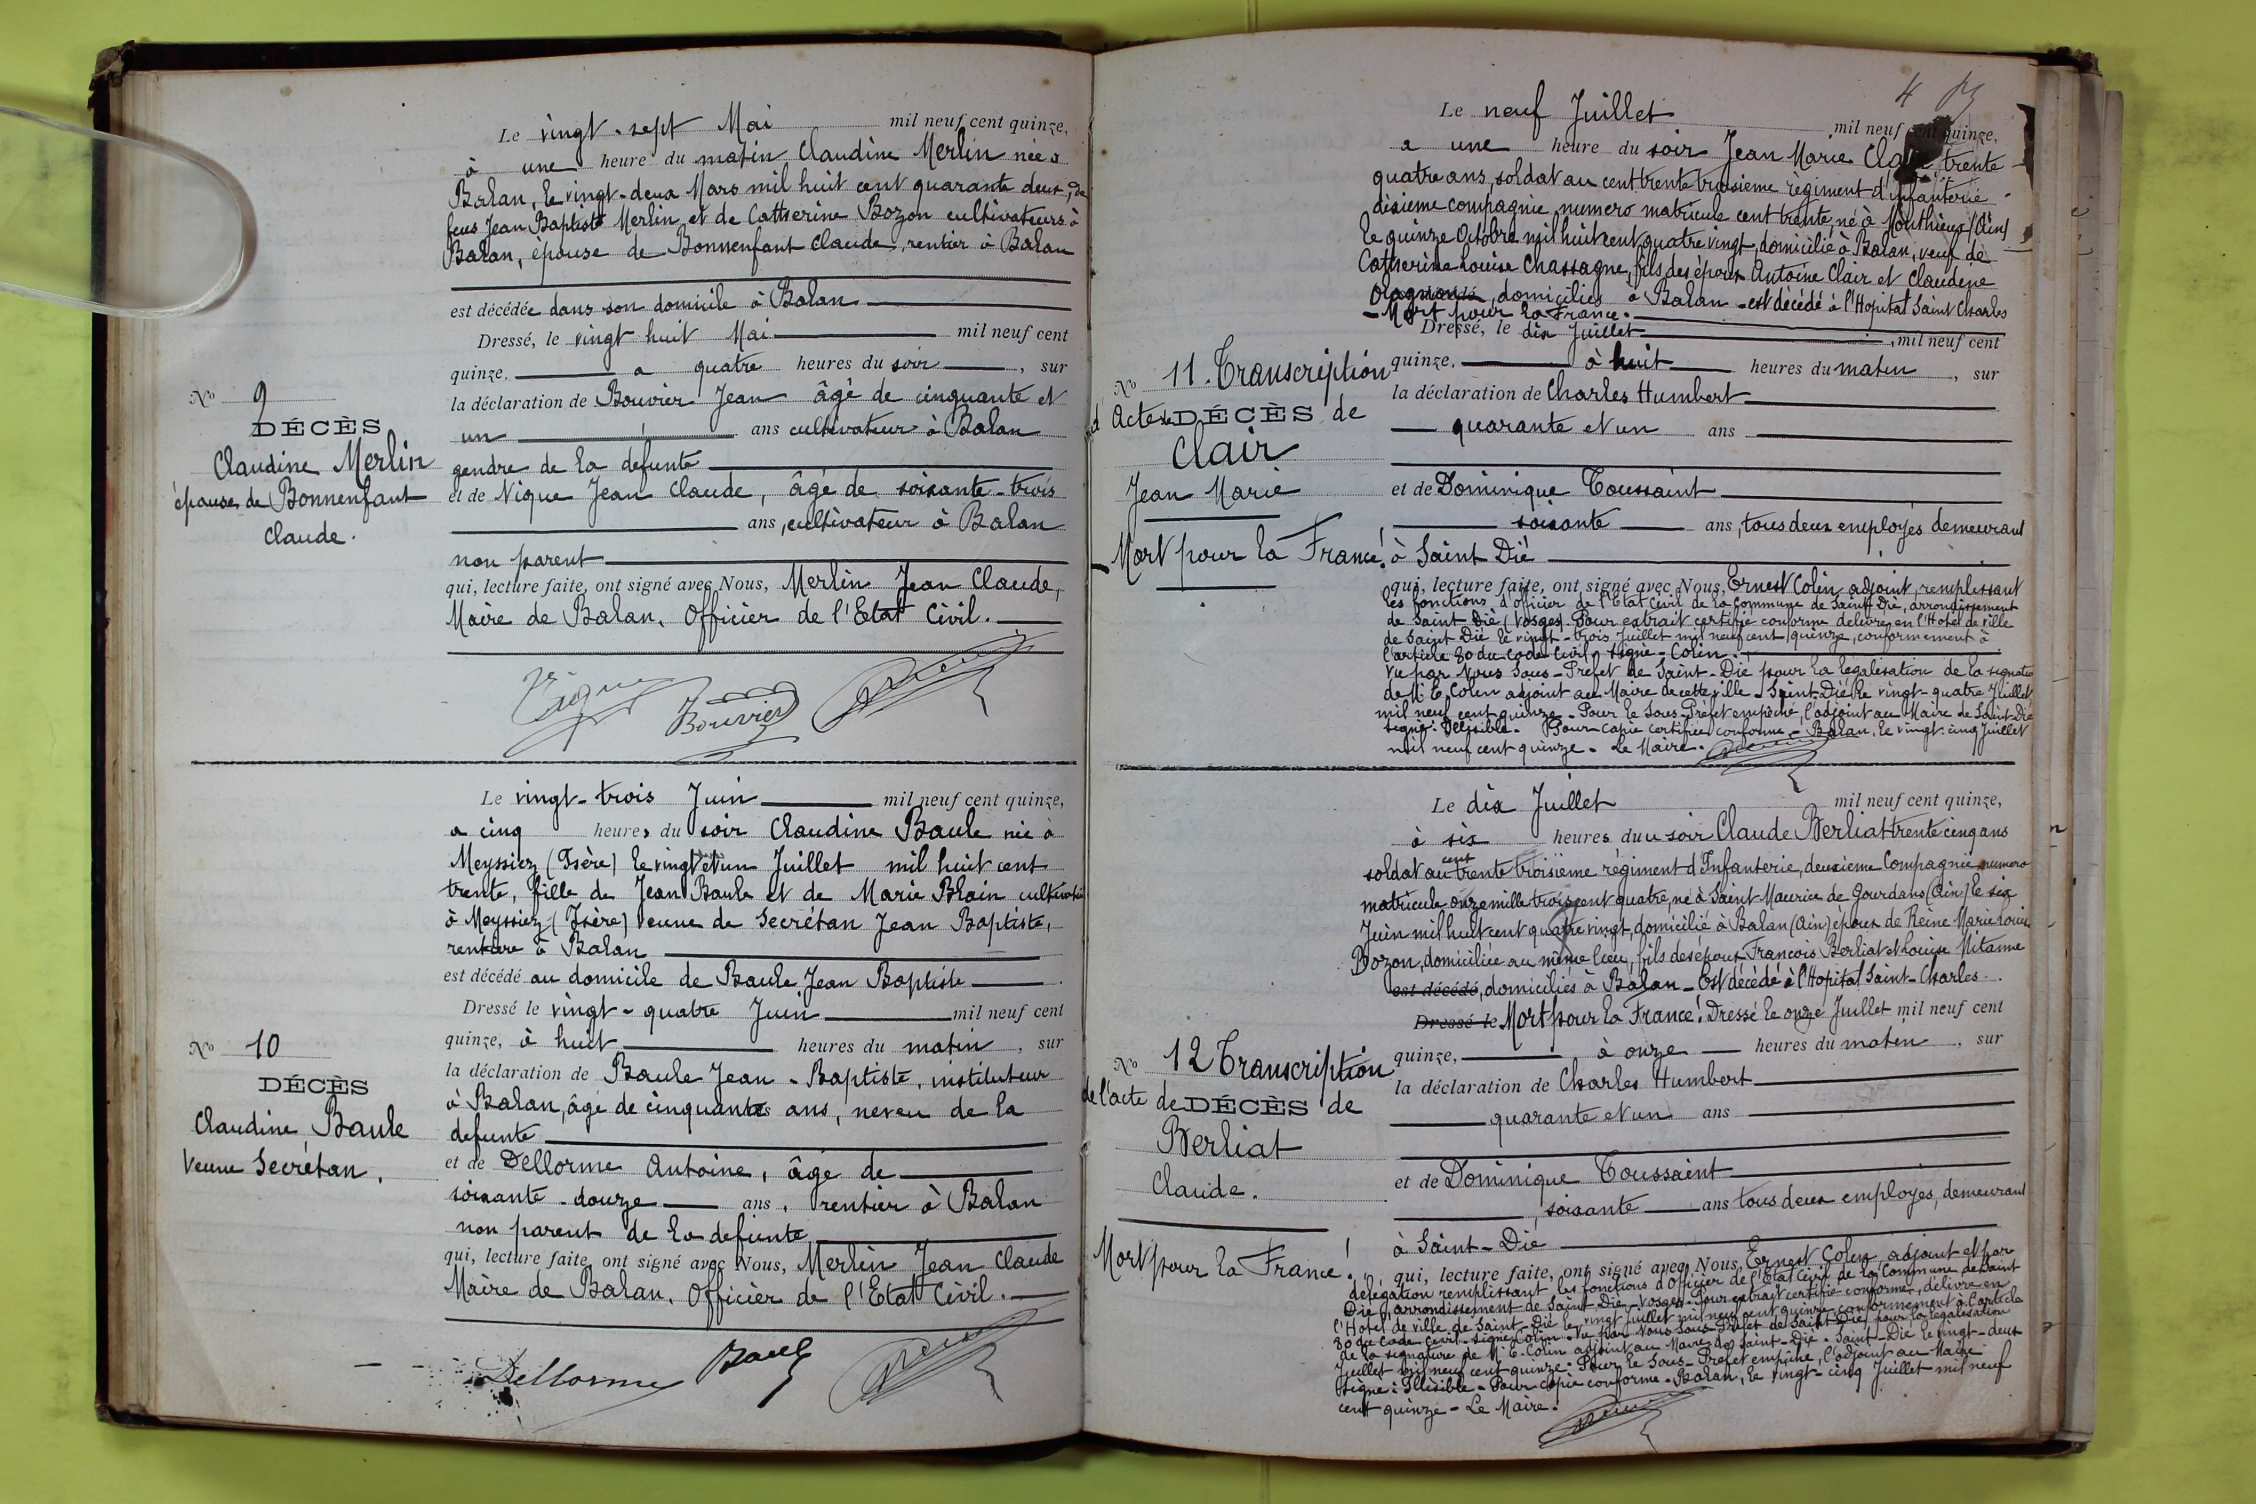 Le vingt-sept Mai mil neuf cent quinze,
à une heure du matin Claudine Merlin née à
Balan, le vingt-deux Mars mil huit cent quarante deux, de
feus Jean Baptiste Merlin et de Catherine Bozon cultivateurs à
Balan, épouse de Bonnenfant Claude, rentier à Balan
est décédée dans son domicile à Balan
Dressé, le vingt huit Mai mil neuf cent
quinze, a quatre heures du soir, sur
la déclaration de Bouvier Jean âgé de cinquante et
un ans cultivateur à Balan
gendre de la defunte
et de Nique Jean Claude, âgé de soixante-trois
ans, cultivateur à Balan
non parent
qui, lecture faite, ont signé avec Nous, Merlin Jean Claude,
Maire de Balan, Officier de l'Etat Civil.
No 9
DÉCÈS
Claudine Merlin
épouse de Bonnenfant
Claude.
Bouvier
Le vingt-trois Juin mil neuf cent quinze,
a cinq heures du soir Claudine Baule née à
Meyssiez (Isère) le vingt et un Juillet mil huit cent
trente, fille de Jean Baule et de Marie Blain
à Meyssiez (Isère) veuve de Secrétan Jean Baptiste,
rentière à Balan
est décédé au domicile de Baule Jean Baptiste
Dressé le vingt-quatre Juin mil neuf cent
quinze, à huit heures du matin, sur
la déclaration de Baule Jean-Baptiste, instituteur
à Balan, âgé de cinquante ans, neveu de la
defunte
et de Dellorme Antoine, âgé de
soixante-douze ans, rentier à Balan
non parent de la defunte
qui, lecture faite, ont signé avec Nous, Merlin Jean Claude
Maire de Balan, Officier de l'Etat Civil.
No 10
DÉCÈS
Claudine Baule
Veuve Secrétan.
Dellorme Baule
4
Le neuf Juillet mil neuf cent quinze,
a une heure du soir Jean Marie Clair, trente
quatre ans, soldat au cent trente troisième règiment d'infanterie
dixieme compagnie, numero matricule cent trente, né à Monthieux (Ain)
le quinze Octobre mil huit cent quatre vingt, domicilié à Balan, veuf de
Catherine Louise Chassagne, fils des époux Antoine Clair et Claudine
domiciliés à Balan - est décédé à l'Hopital Saint Charles
- Mort pour la France.
Dressé, le dix Juillet, mil neuf cent
quinze, à huit heures du matin, sur
la déclaration de Charles Humbert
quarante et un ans
et de Dominique Toussaint
soixante ans, tous deux employés demeurant
à Saint Dié
qui, lecture faite, ont signé avec Nous, Ernest Colin adjoint, remplissant
les fonctions d'officier de l'Etat Civil de la Commune de Saint Dié, arrondissement
de Saint Dié (Vosges). Pour extrait certifié conforme delivré en l'Hotel de ville
de Saint Dié le vingt-trois Juillet mil neuf cent quinze, conformement à
l'article 80 du code Civil, signé - Colin.
Vu par Nous Sous-Préfet de Saint-Dié pour la legalisation de la signature
de M. E. Colin adjoint au Maire de cette ville - Saint Dié le vingt-quatre Juillet
mil neuf cent quinze - Pour le Sous-Préfet empêché, l'adjoint au Maire de Saint-Dié
signé: Illisible. Pour copie certifiée conforme - Balan, le vingt-cinq Juillet
mil neuf cent quinze. Le Maire.
No 11. Transcription
d'Acte de DÉCÈS de
Clair
Jean Marie
Mort pour la France!
Le dix Juillet mil neuf cent quinze,
à six heures du soir Claude Berliat trente cinq ans
soldat au cent trente troisième régiment d'Infanterie, deuxieme Compagnie numero
matricule onze mille trois cent quatre, né à Saint Maurice de Gourdans (Ain) le six
Juin mil huit cent quatre vingt, domicilié à Balan (Ain) époux de Reine Marie Louise
Bozon, domiciliée au même lieu, fils des époux François Berliat et Louise Mitanne
est décédé, domiciliés à Balan - Est décédé à l'Hopital Saint-Charles -
Dressé le Mort pour la France! Dressé le onze Juillet mil neuf cent
quinze, à onze heures du matin, sur
la déclaration de Charles Humbert
quarante et un ans
et de Dominique Toussaint
, soixante ans tous deux employés, demeurant
à Saint-Dié
qui, lecture faite, ont signé avec Nous, Ernest Colin, adjoint et par
délégation remplissant les fonctions d'Officier de l'Etat Civil de la Commune de Saint
Dié, arrondissement de Saint Dié - Vosges. Pour extrait certifié conforme, délivré en
l'Hotel de ville de Saint-Dié le vingt Juillet mil neuf cent quinze conformement à l'article
80 du Code Civil - signé Colin - Vu par Nous Sous-Préfet de Saint Dié, pour la legalisation
de la signature de M. E. Colin adjoint au Maire de Saint-Dié. Saint-Dié le vingt-deux
Juillet mil neuf cent quinze - Pour le Sous-Préfet empêché, l'adjoint au Maire
signé: Illisible - Pour copie conforme - Balan, le vingt-cinq Juillet mil neuf
cent quinze - Le Maire.
No 12 Transcription
de l'acte de DÉCÈS de
Berliat
Claude.
Mort pour la France!